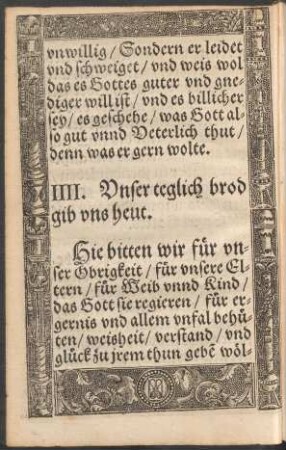 vnwillig / Sondern er leidet
vnd schweiget / vnd weis wol
das es Gottes guter vnd gne-
diger will ist / vnd es billicher
sey / es geschehe / was Gott al-
so gut vnnd Veterlich thut /
denn was er gern wolte.
IIII. Vnser teglich brod
gib vns heut.
Hie bitten wir für vn-
ser Obrigkeit / für vnsere El-
tern / für Weib vnnd Kind /
das Gott sie regieren / für er-
gernis vnd allem vnfal behü-
ten / weisheit / verstand / vnd
glück zu jrem thun gebẽ wöl-